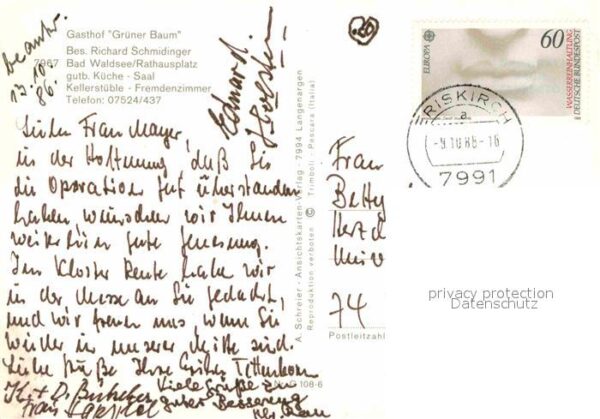 beantw.
13.10.
86.
Gasthof "Grüner Baum"
Bes. Richard Schmidinger
7967 Bad Waldsee/Rathausplatz
gutb. Küche - Saal
Kellerstüble - Fremdenzimmer
Telefon: 07524/437
Liebe Frau Mayer,
in der Hoffnung, daß Sie
die Operation gut überstanden
haben wünschen wir Ihnen
weiterhin gute Genesung.
Im Kloster Reute habe wir
in der Messe an Sie gedacht,
und wir freuen uns wenn Sie
wieder in unserer Mitte sind.
Liebe Grüße Ihre
Viele Grüße und
gute Besserung
Frau
Eduard
A. Schreier - Ansichtskarten-Verlag - 7994 Langenargen
Reproduktion verboten © Trimboli - Pescara (Italia)
G 108-6
Frau
Betty
74
Postleitzahl
EUROPA
CEPT
60
WASSERREINHALTUNG
DEUTSCHE BUNDESPOST
ERISKIRCH
a
-9.10.86-16
7991
privacy protection
Datenschutz